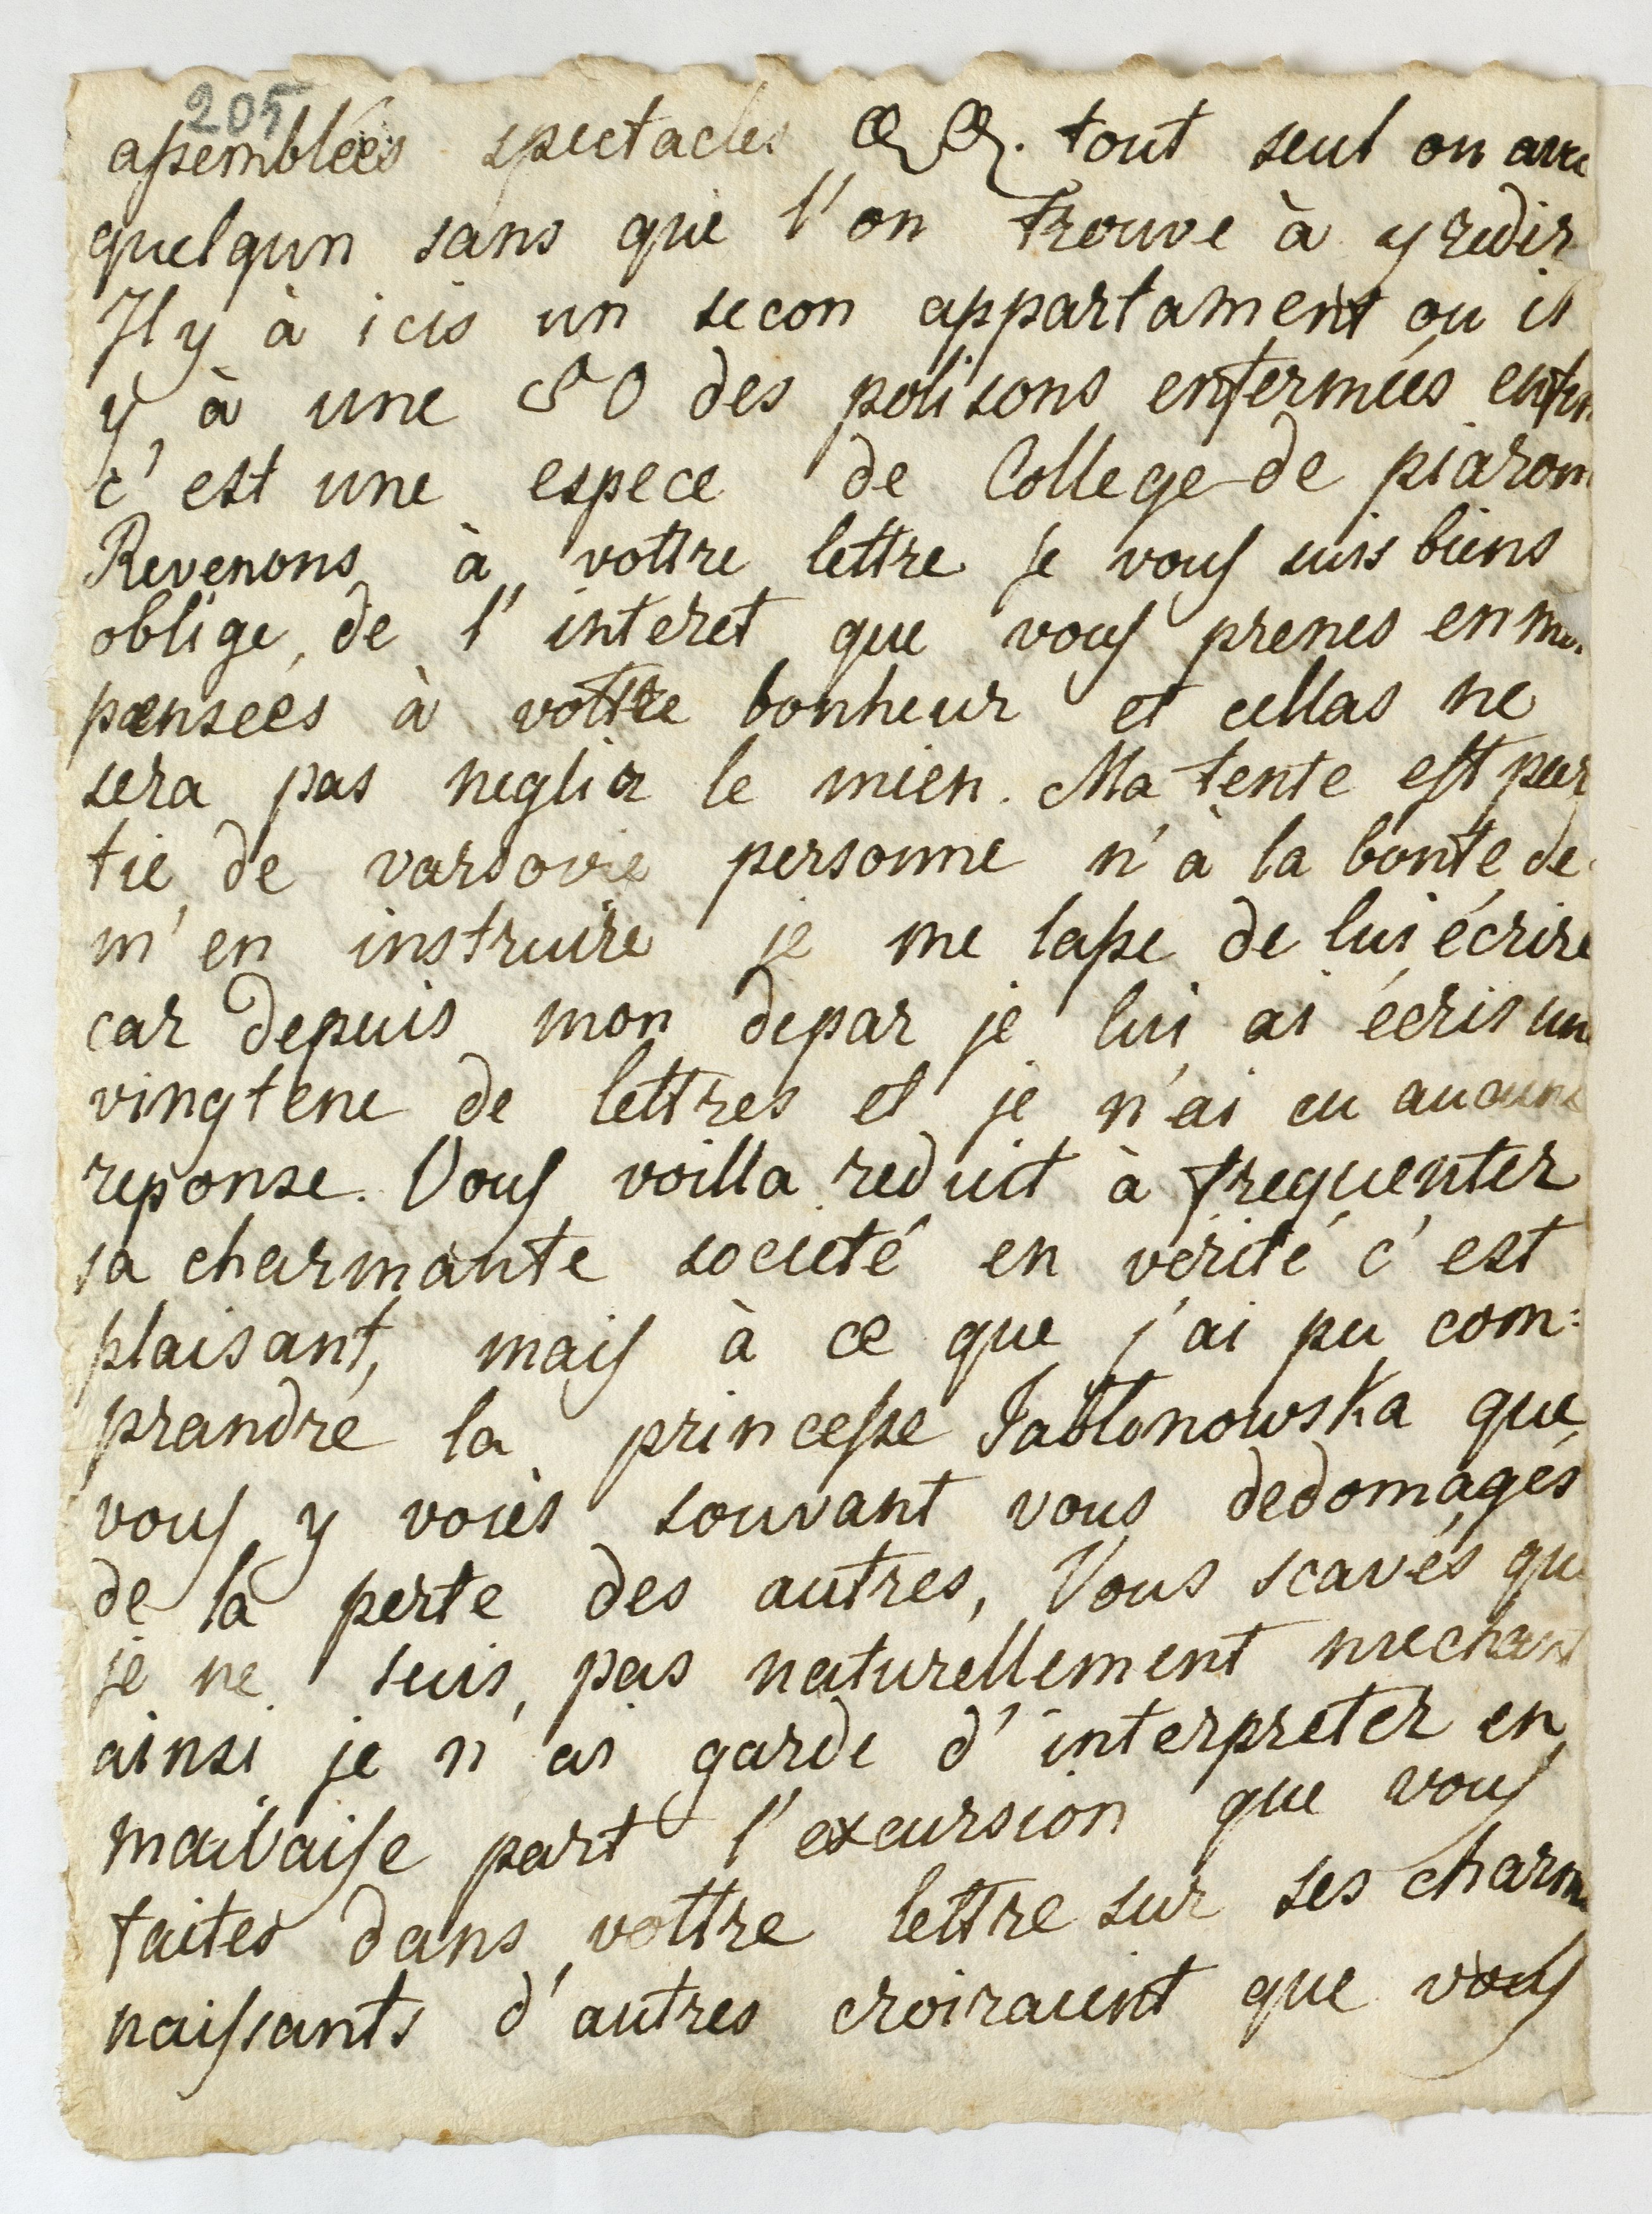 205
assemblées spectacles &c &c. tout seul on
quelqun sans que l'on trouve à y redir
Il y à icis un secon appartament ou il
y à une 50 des polisons enfermées enfin
c'est une espece de College de piaron
Revenons à vottre lettre je vous suis biens
oblige, de l'interet que vous prenes en
pensées à vottre bonheur et cellas ne
sera pas neglier le mien. Ma tente est par
tie de varsovie personne n'à la bonte de
m'en instruire je me lasse de lui écrire
car depuis mon depar je lui ai écris un
vingtene de lettres et je n'ai eu aucune
reponse. Vous voilla reduit à frequenter
sa charmante societé en verité c'est
plaisant, mais à ce que j'ai pu com:
prandre la princesse Jablonowska que
vous y voiés souvant vous dedomagés
de la perte des autres, Vous scavés qu
je ne suis pas naturellement mechant
ainsi je n'ai garde d'interpreter en
mauvaise part l'excursion que vous
faites dans vottre lettre sur ses charm
naissants d'autres croiraient que vous